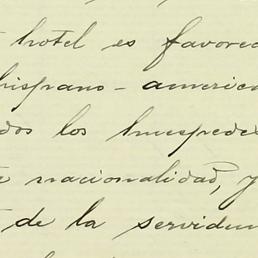 hotel es favorec
hispano-america
dos los huespedes
nacionalidad, y
de la servidum